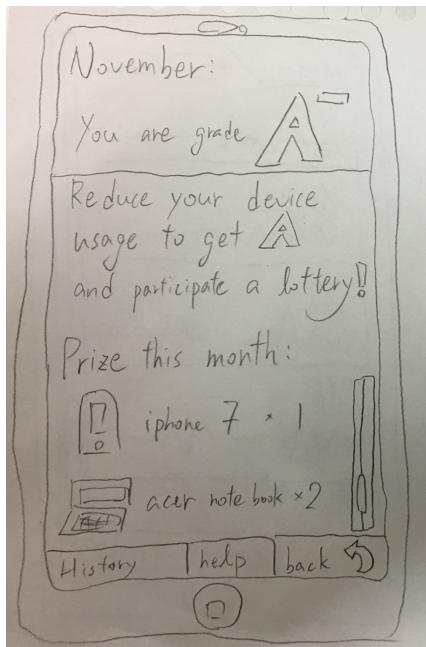 November:
You are grade A-
Reduce your device
usage to get A
and participate a lottery!
Prize this month:
iphone 7 × 1
acer notebook ×2
History help back